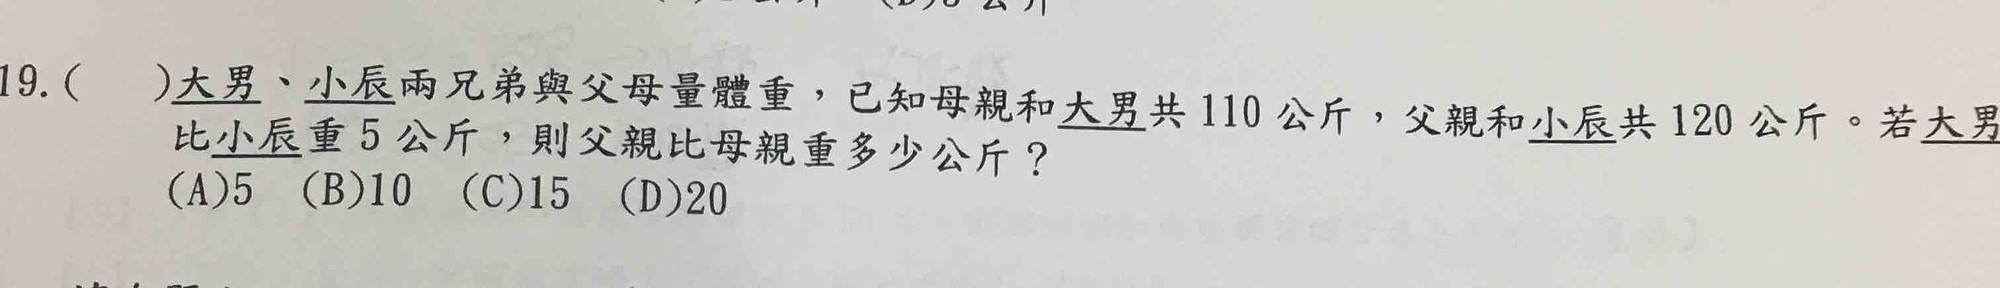 19.( )大男、小辰兩兄弟與父母量體重，已知母親和大男共110公斤，父親和小辰共120公斤。若大男
比小辰重5公斤，則父親比母親重多少公斤？
(A)5 (B)10 (C)15 (D)20